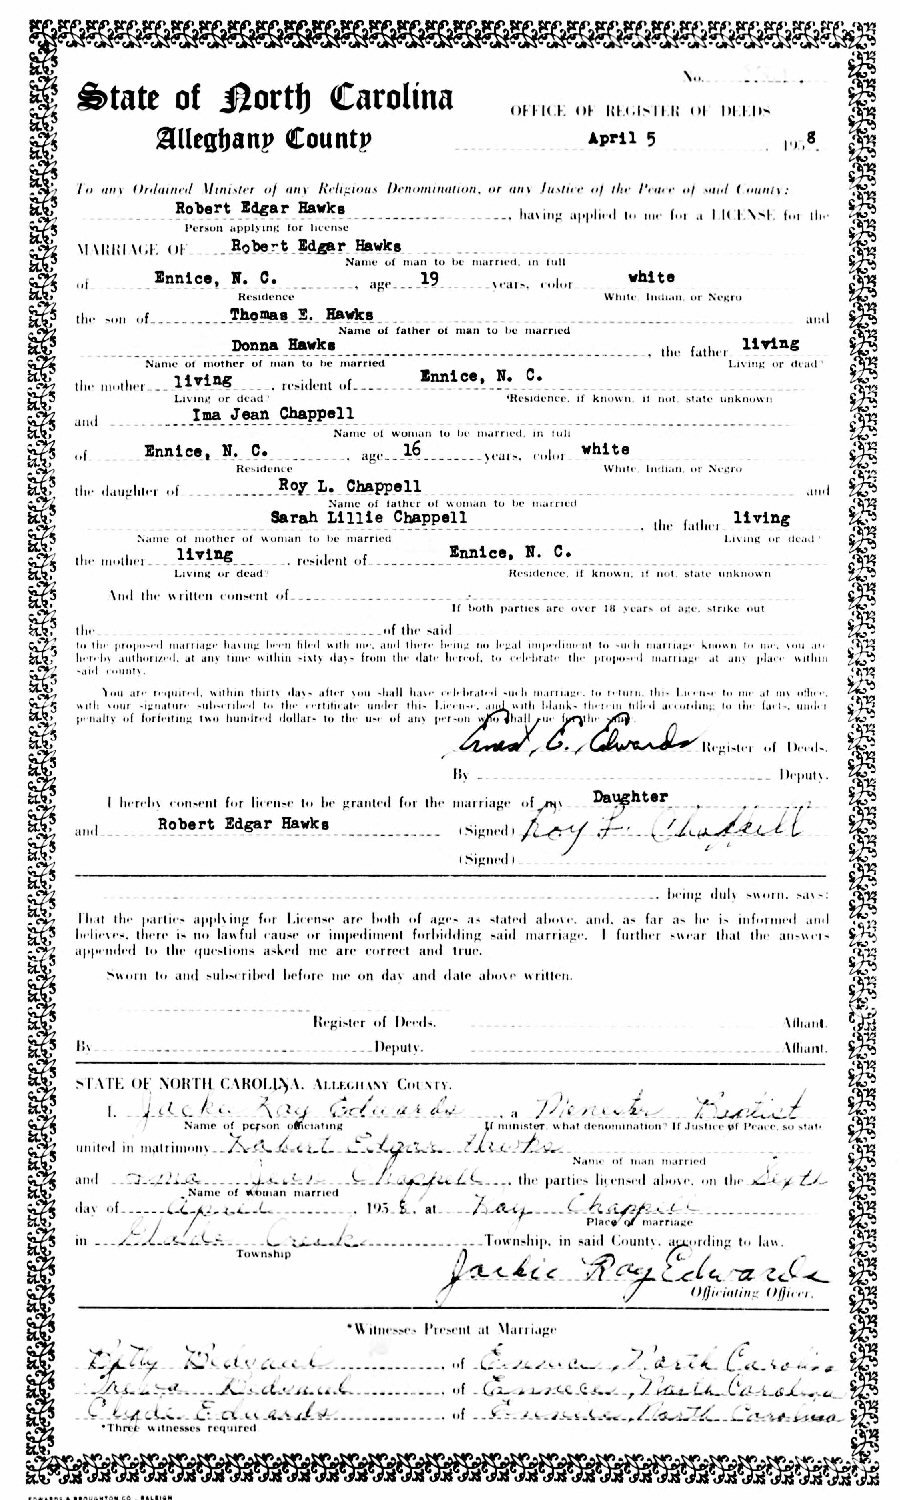 No.
State of North Carolina
Alleghany County
OFFICE OF REGISTER OF DEEDS
April 5, 1958.
To any Ordained Minister of any Religious Denomination, or any Justice of the Peace of said County:
Robert Edgar Hawks, having applied to me for a LICENSE for the
Person applying for license
MARRIAGE OF Robert Edgar Hawks
Name of man to be married, in full
of Ennice, N. C., age 19 years, color white
Residence White, Indian, or Negro
the son of Thomas E. Hawks and
Name of father of man to be married
Donna Hawks, the father living
Name of mother of man to be married Living or dead?
the mother living, resident of Ennice, N. C.
Living or dead? *Residence, if known, if not, state unknown
and Ima Jean Chappell
Name of woman to be married, in full
of Ennice, N. C., age 16 years, color white
Residence White, Indian, or Negro
the daughter of Roy L. Chappell and
Name of father of woman to be married
Sarah Lillie Chappell, the father living
Name of mother of woman to be married Living or dead?
the mother living, resident of Ennice, N. C.
Living or dead? Residence, if known, if not, state unknown
And the written consent of
If both parties are over 18 years of age, strike out
the of the said
to the proposed marriage having been filed with me, and there being no legal impediment to such marriage known to me, you are
hereby authorized, at any time within sixty days from the date hereof, to celebrate the proposed marriage at any place within
said county.
You are required, within thirty days after you shall have celebrated such marriage, to return, this License to me at my office,
with your signature subscribed to the certificate under this License, and with blanks therein filled according to the facts, under
penalty of forfeiting two hundred dollars to the use of any person who shall sue for the same.
Ernest E. Edwards Register of Deeds.
By Deputy.
I hereby consent for license to be granted for the marriage of my Daughter
and Robert Edgar Hawks (Signed) Roy L. Chappell
(Signed)
, being duly sworn, says:
That the parties applying for License are both of ages as stated above, and, as far as he is informed and
believes, there is no lawful cause or impediment forbidding said marriage. I further swear that the answers
appended to the questions asked me are correct and true.
Sworn to and subscribed before me on day and date above written.
Register of Deeds. Affiant.
By Deputy. Affiant.
STATE OF NORTH CAROLINA, ALLEGHANY COUNTY.
I, Jackie Ray Edwards, a Menester Baptist
Name of person officiating If minister, what denomination? If Justice of Peace, so state
united in matrimony Robert Edgar Hawks
Name of man married
and Ima Jean Chappell, the parties licensed above, on the Sixth
Name of woman married
day of April, 1958, at Roy Chappell
Place of marriage
in Glade Creek Township, in said County, according to law.
Township
Jackie Ray Edwards
Officiating Officer.
*Witnesses Present at Marriage
Betty of Ennice, North Carolina
of Ennice, North Carolina
Clyde Edwards of Ennice, North Carolina
*Three witnesses required
EDWARDS & BROUGHTON CO., RALEIGH